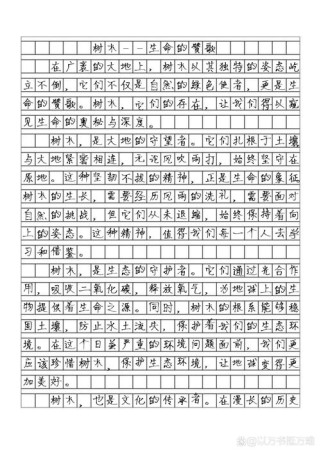 树木--生命的赞歌
在广袤的大地上，树木以其独特的姿态屹
立不倒，它们不仅是自然的绿色使者，更是生
命的赞歌。树木，它们的存在，让我们得以窥
见生命的奥秘与深度。
树木，是大地的守望者。它们扎根于土壤
与大地紧密相连，无论风吹雨打，始终坚守在
原地。这种坚韧不拔的精神，正是生命的象征
树木的生长，需要经历风雨的洗礼，需要面对
自然的挑战，但它们从未退缩，始终保持着向
上的姿态。这种精神，值得我们每一个人去学
习和借鉴。
树木，是生态的守护者。它们通过光合作
用，吸收二氧化碳，释放氧气，为地球上的生
物提供着生命之源。同时，树木的根系能够稳
固土壤，防止水土流失，保护着我们的生态环
境。在这个日益严重的环境问题面前，我们更
应该珍惜树木，保护生态环境，让地球变得更
加美好。
树木，也是文化的传承者。在漫长的历史